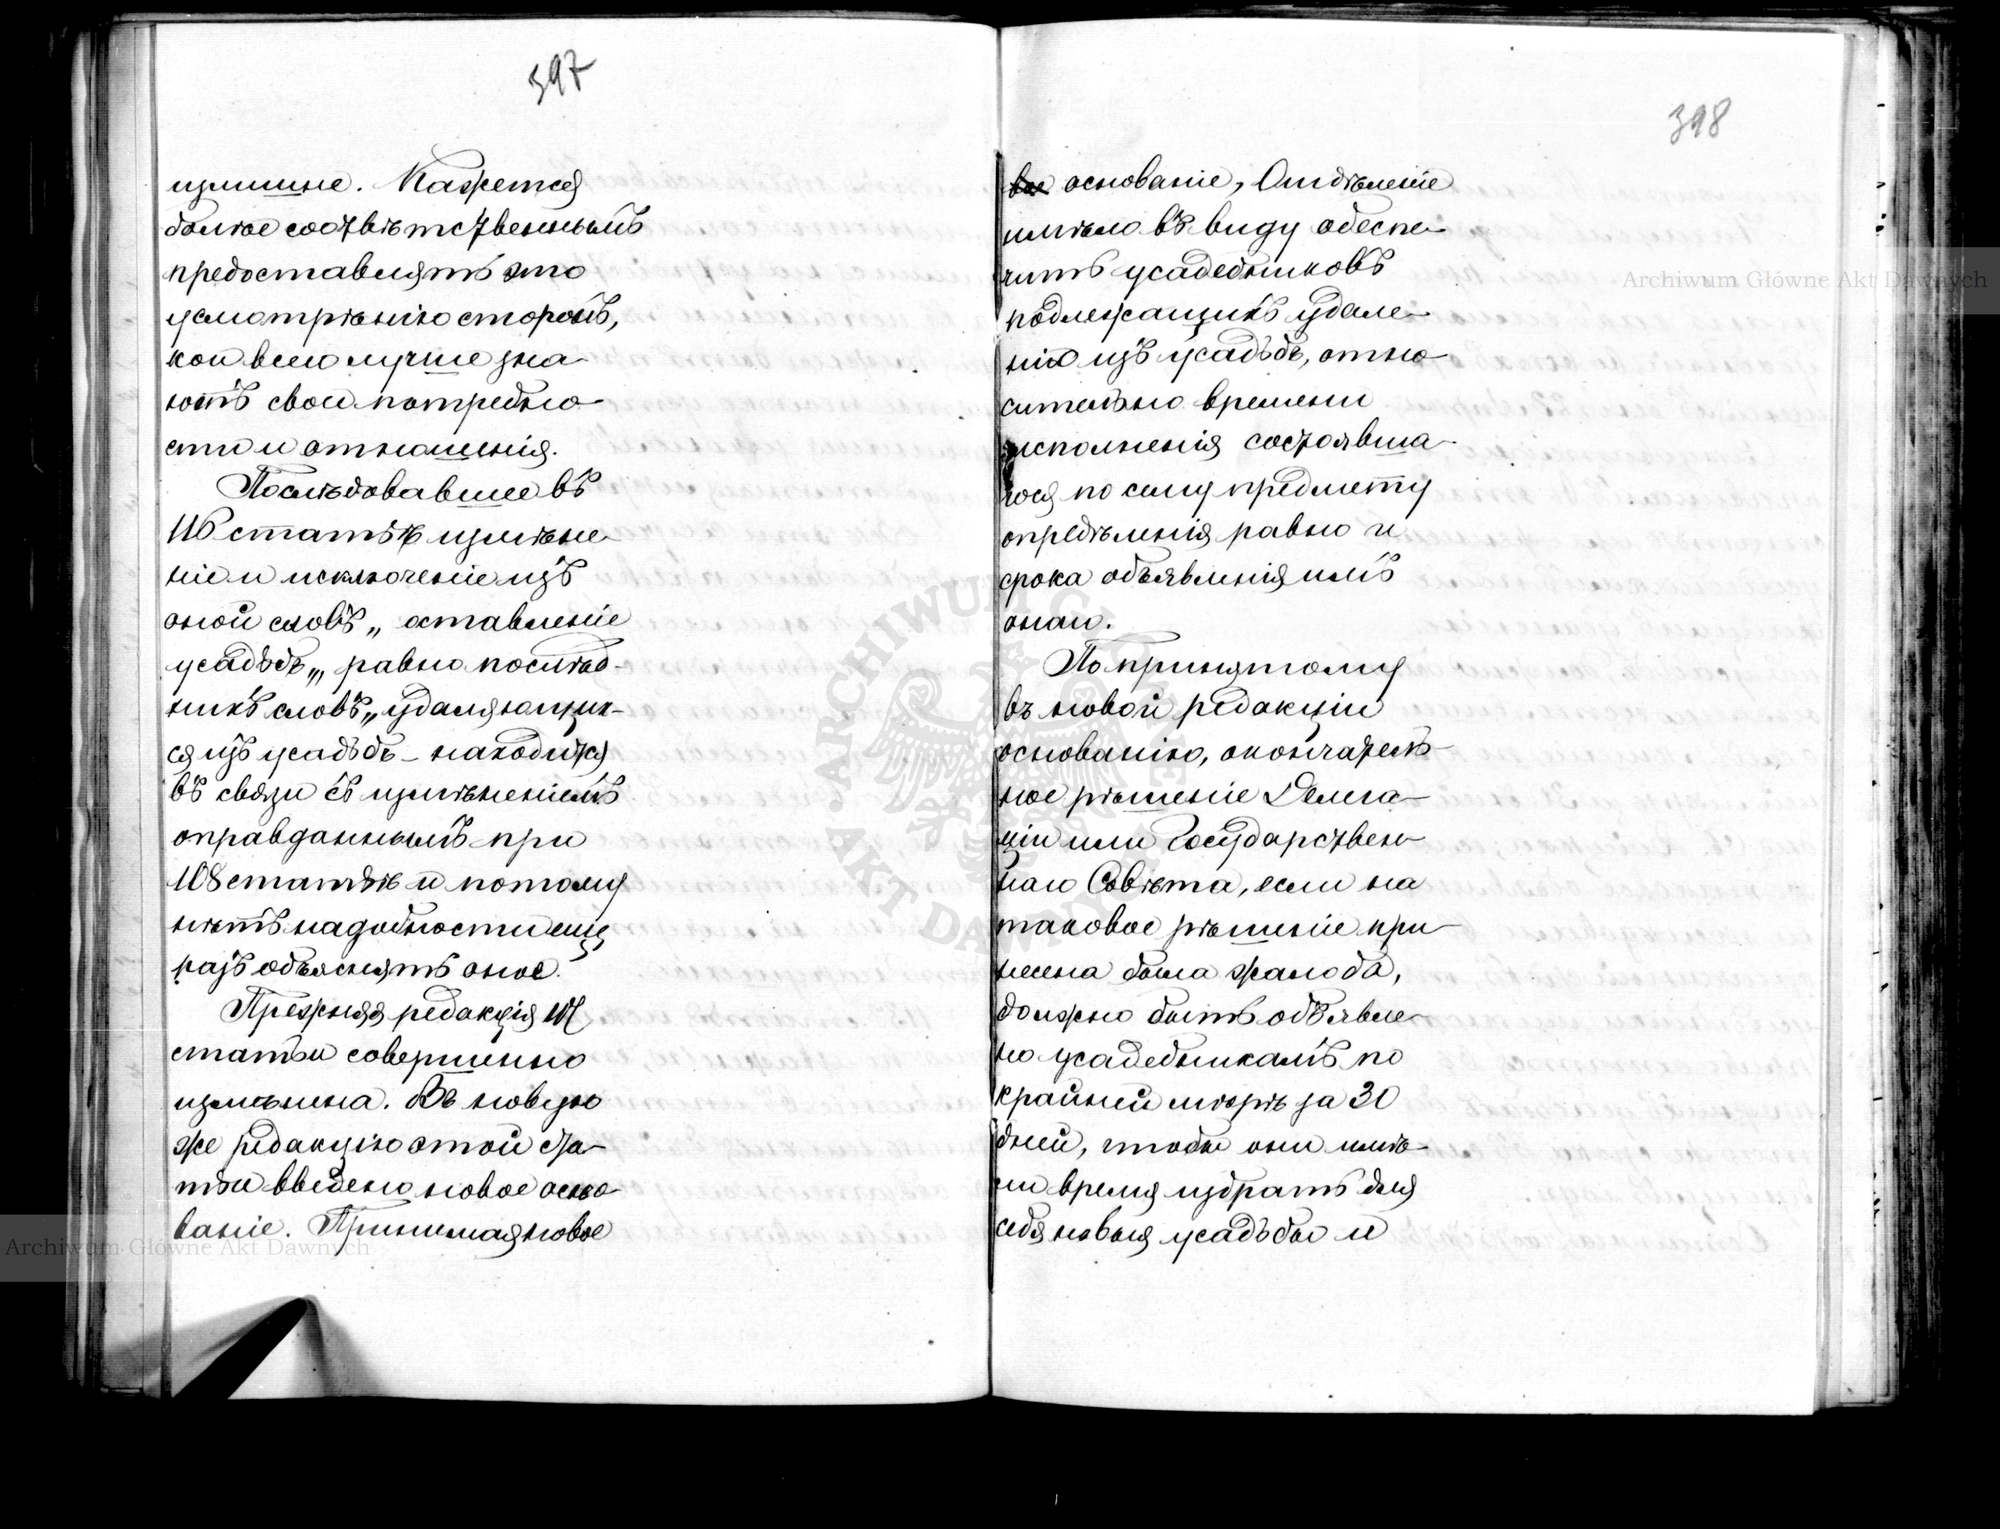 397
излишне. Кажется
болѣе соотвѣтственнымъ
предоставлять это
усмотрѣнію сторонъ,
кои всего лучше зна-
ютъ свои потребно-
сти и отношенія.
Послѣдовавшее въ
116 статьѣ измѣне-
ніе и исключеніе изъ
оной словъ „ оставленіе
усадьбъ„, равно послѣд-
нихъ словъ „ удаляющих-
ся изъ усадьбъ - находится
въ связи съ измѣненіемъ
оправданнымъ при
108 статьѣ и потому
нѣтъ надобности еще
разъ объяснять оное.
Прежняя редакція
статьи совершенно
измѣнена. Въ новую
же редакцію этой ста-
тьи введено новое осно-
ваніе. Принимая новое
398
основаніе, Отдѣленіе
имѣло въ виду обеспе-
чить усадебниковъ
подлежащихъ удале-
нію изъ усадьбъ, отно-
сительно времени
исполненія состоявша-
гося по сему предмету
опредѣленія равно и
срока объявленія имъ
онаго.
По принятому
въ новой редакціи
основанію, окончатель-
ное рѣшеніе Делега-
ціи или Государствен-
наго Совѣта, если на
таковое рѣшеніе при-
несена была жалоба,
должно быть объявле-
но усадебникамъ по
крайней мѣрѣ за 30
дней, чтобы они имѣ-
ли время избрать для
себя новыя усадьбы и
Archiwum Główne Akt Dawnych
Archiwum Główne Akt Dawnych
ARCHIWUM GŁÓWNE
AKT DAWNYCH